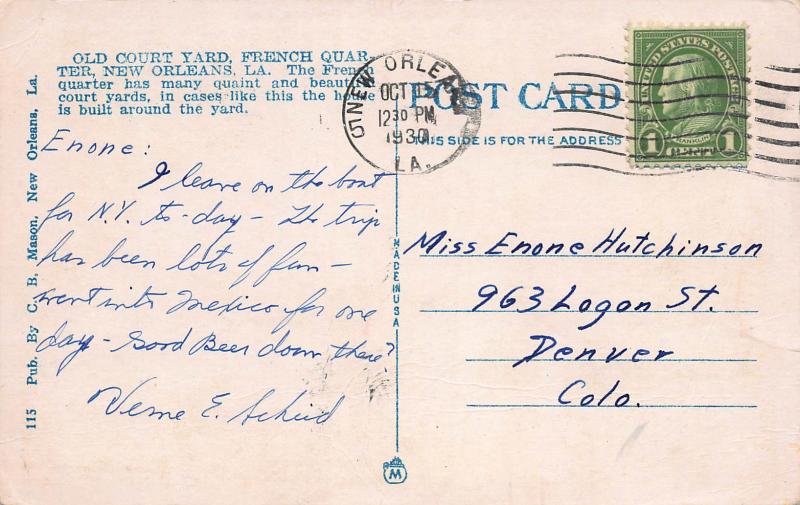 OLD COURT YARD, FRENCH QUAR-
TER, NEW ORLEANS, LA. The French
quarter has many quaint and beautiful
court yards, in cases like this the house
is built around the yard.
Enone:
I leave on the boat
for N.Y. to-day - The trip
has been lots of fun -
went into Mexico for one
day - Good Beer down there?
Verne E. Scheid
115 Pub. By C. B. Mason, New Orleans, La.
NEW ORLEANS
OCT 15
12 30 PM
1930
LA.
5
POST CARD
THIS SIDE IS FOR THE ADDRESS
UNITED STATES POSTAGE
FRANKLIN
1 CENT 1
MADE IN USA
Miss Enone Hutchinson
963 Logan St.
Denver
Colo.
M